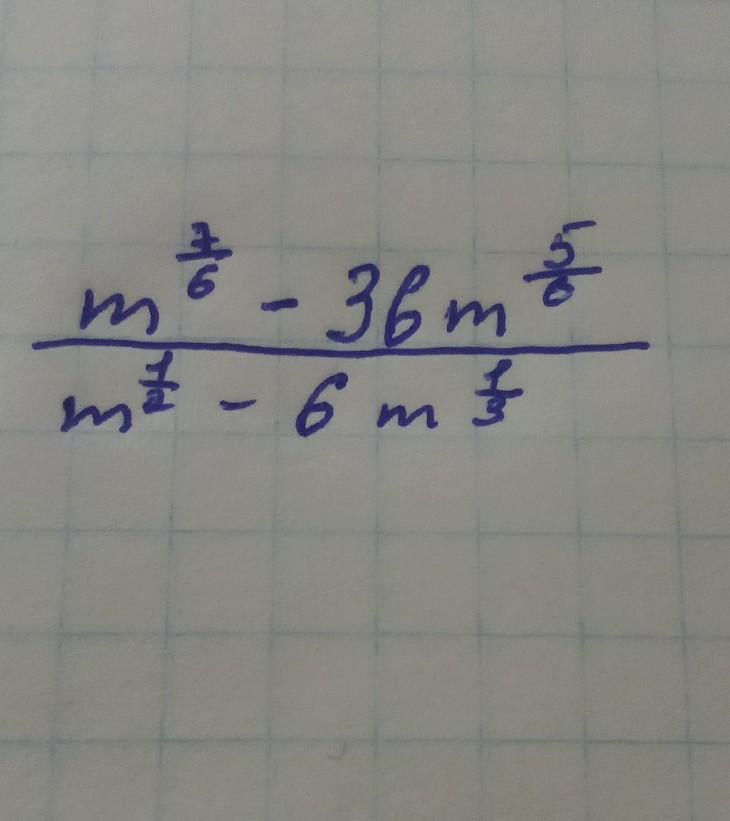 m^{7/6} - 36m^{5/6}
m^{1/2} - 6m^{1/3}